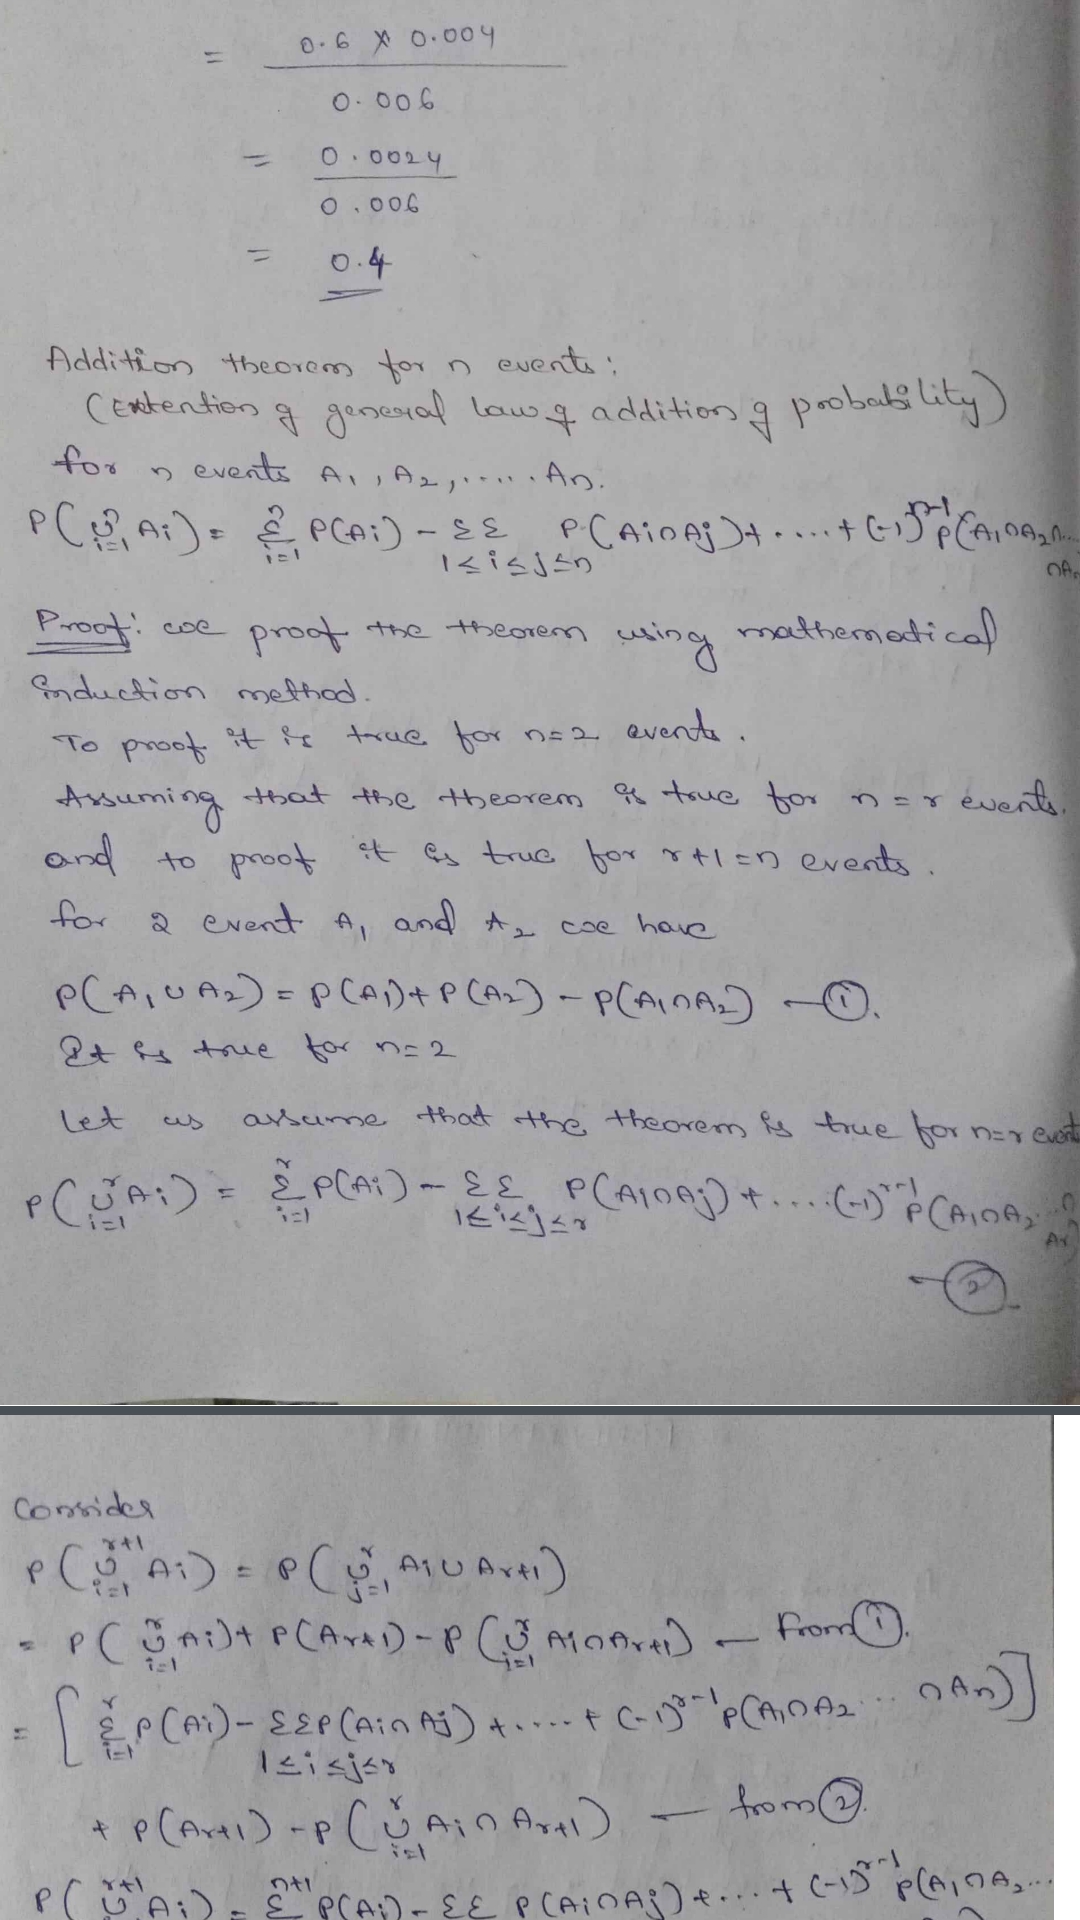 = 0.6 × 0.004 / 0.006
= 0.0024 / 0.006
= 0.4
Addition theorem for n events:
(Extention of general law of addition of probability)
for n events A₁, A₂, ..... An.
P(⋃ᵢ₌₁ⁿ Ai) = Σᵢ₌₁ⁿ P(Ai) - ΣΣ 1≤i≤j≤n P(Ai∩Aj) + .... + (-1)ⁿ⁻¹ P(A₁∩A₂∩... ∩An
Proof: we proof the theorem using mathematical
induction method.
To proof it is true for n=2 events.
Assuming that the theorem is true for n=r events.
and to proof it is true for r+1=n events.
for 2 event A₁ and A₂ we have
P(A₁∪A₂) = P(A₁) + P(A₂) - P(A₁∩A₂) — ①.
It is true for n=2
Let us assume that the theorem is true for n=r event
P(⋃ᵢ₌₁ʳ Ai) = Σᵢ₌₁ʳ P(Ai) - ΣΣ 1≤i≤j≤r P(Ai∩Aj) + .... (-1)ʳ⁻¹ P(A₁∩A₂ ...∩ Ar)
— ②.
Consider
P(⋃ᵢ₌₁ʳ⁺¹ Ai) = P(⋃ⱼ₌₁ʳ Ai ∪ Ar+1)
= P(⋃ᵢ₌₁ʳ Ai) + P(Ar+1) - P(⋃ᵢ₌₁ʳ Ai∩Ar+1) — from ①.
= [Σᵢ₌₁ʳ P(Ai) - ΣΣ P(Ai∩Aj) 1≤i≤j≤r + ..... + (-1)ʳ⁻¹ P(A₁∩A₂ ... ∩An)]
+ P(Ar+1) - P(⋃ᵢ₌₁ʳ Ai∩Ar+1) — from ②.
P(⋃ʳ⁺¹ Ai) = Σⁿ⁺¹ P(Ai) - ΣΣ P(Ai∩Aj) + ... + (-1)ʳ⁻¹ P(A₁∩A₂...